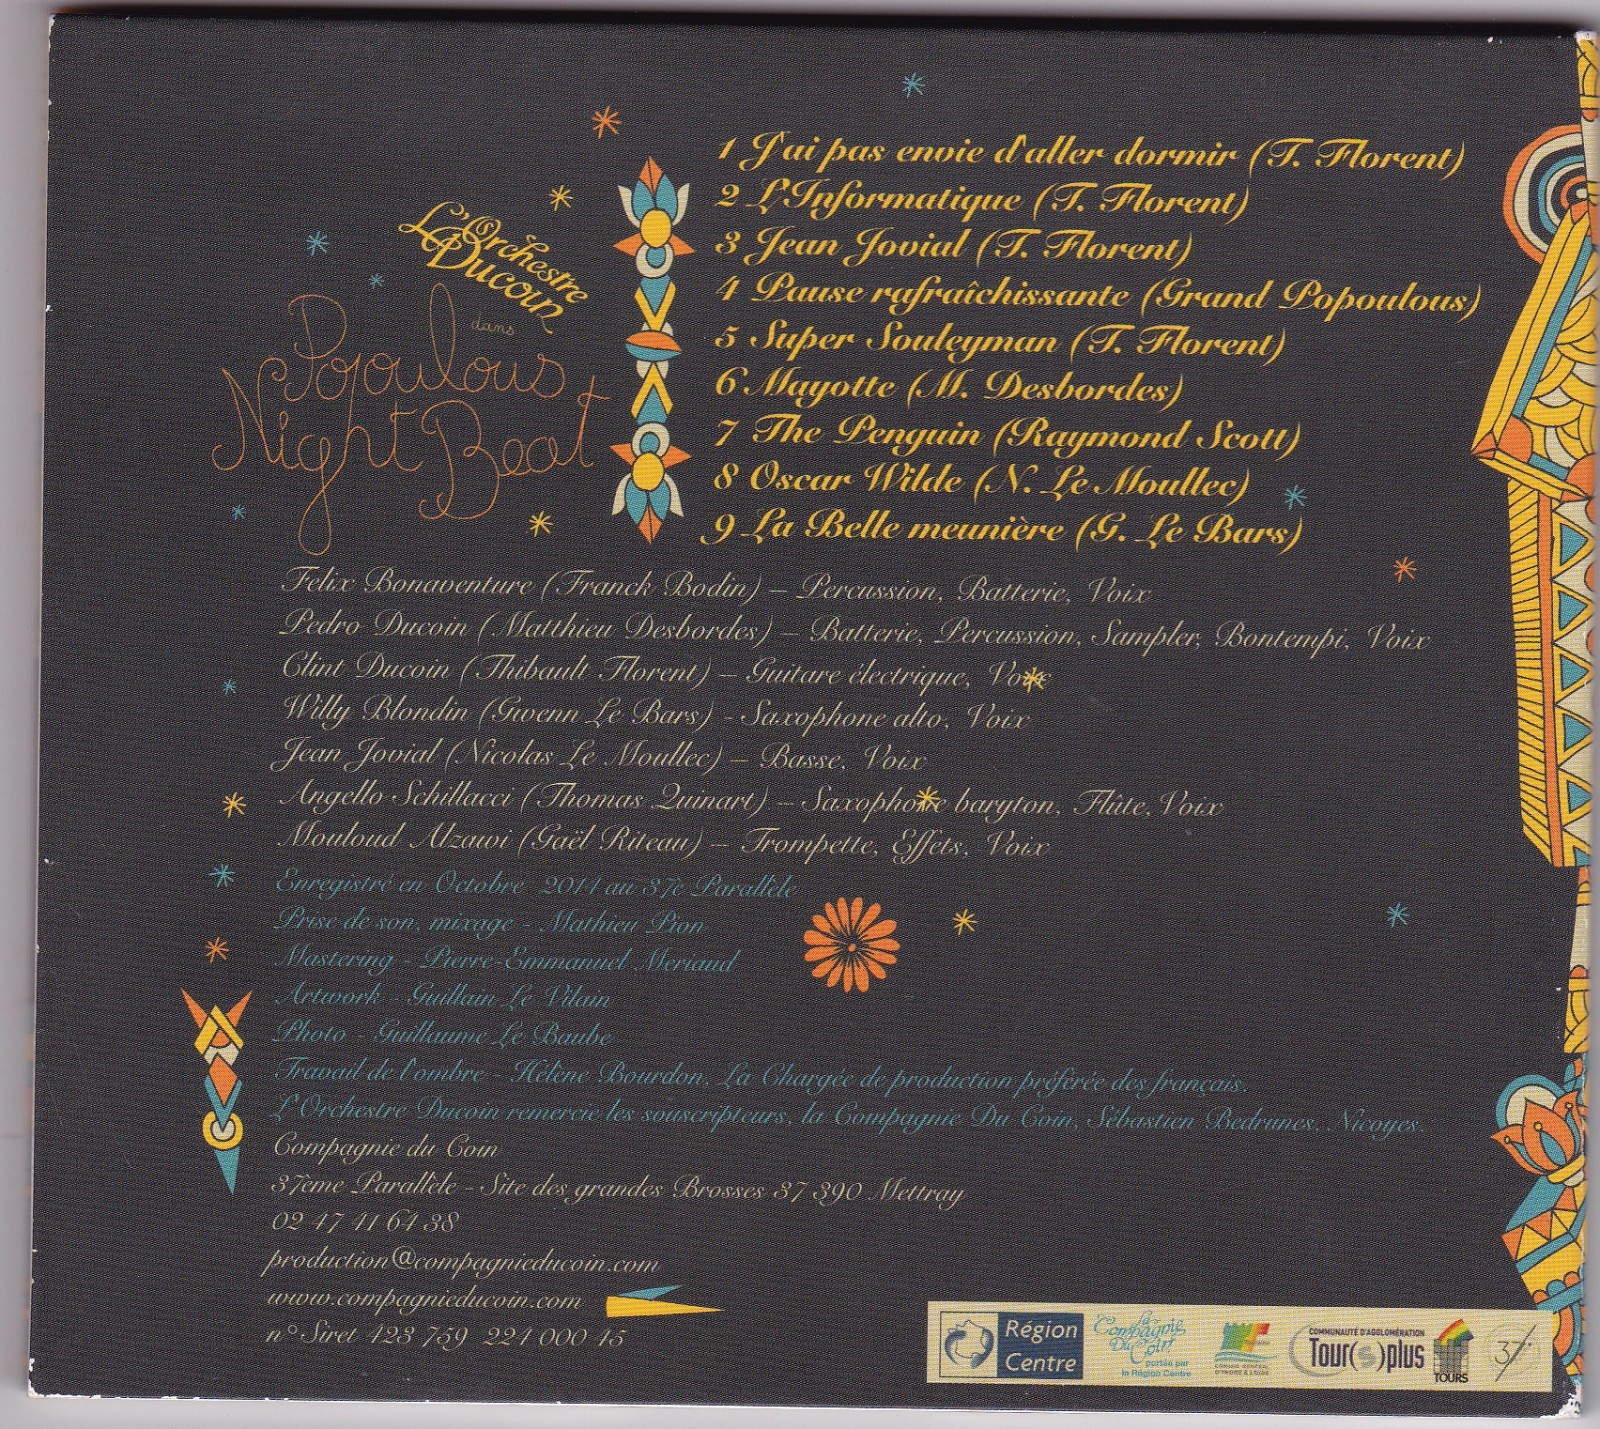 L'Orchestre
Ducoin
dans
Popoulous
Night Beat
1 J'ai pas envie d'aller dormir (T. Florent)
2 L'Informatique (T. Florent)
3 Jean Jovial (T. Florent)
4 Pause rafraîchissante (Grand Popoulous)
5 Super Souleyman (T. Florent)
6 Mayotte (M. Desbordes)
7 The Penguin (Raymond Scott)
8 Oscar Wilde (N. Le Moullec)
9 La Belle meunière (G. Le Bars)
Felix Bonaventure (Franck Bodin) – Percussion, Batterie, Voix
Pedro Ducoin (Matthieu Desbordes) – Batterie, Percussion, Sampler, Bontempi, Voix
Clint Ducoin (Thibault Florent) – Guitare électrique, Voix
Willy Blondin (Gwenn Le Bars) - Saxophone alto, Voix
Jean Jovial (Nicolas Le Moullec) – Basse, Voix
Angello Schillacci (Thomas Quinart) – Saxophone baryton, Flûte, Voix
Mouloud Alzawi (Gaël Riteau) – Trompette, Effets, Voix
Enregistré en Octobre 2011 au 37è Parallèle
Prise de son, mixage - Mathieu Pion
Mastering - Pierre-Emmanuel Meriaud
Artwork - Guillain Le Vilain
Photo - Guillaume Le Baube
Travail de l'ombre - Hélène Bourdon, La Chargée de production préférée des français.
L'Orchestre Ducoin remercie les souscripteurs, la Compagnie Du Coin, Sébastien Bedrunes, Nicoyes.
Compagnie du Coin
37ème Parallèle - Site des grandes Brosses 37 390 Mettray
02 47 41 64 38
production@compagnieducoin.com
www.compagnieducoin.com
n° Siret 423 759 224 000 45
Région
Centre
la
Compagnie
Du
Coin
portée par
la Région Centre
CONSEIL GÉNÉRAL
D'INDRE & LOIRE
COMMUNAUTÉ D'AGGLOMÉRATION
Tour(s)plus
TOURS
37